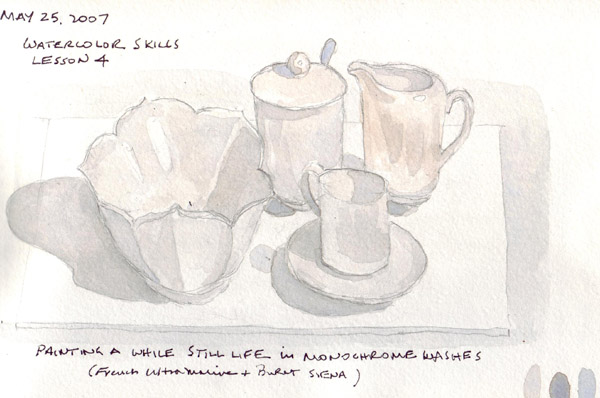 MAY 25, 2007
WATERCOLOR SKILLS
LESSON 4
PAINTING A WHILE STILL LIFE in MONOCHROME WASHES
(French Ultramarine + Burnt SIENA)